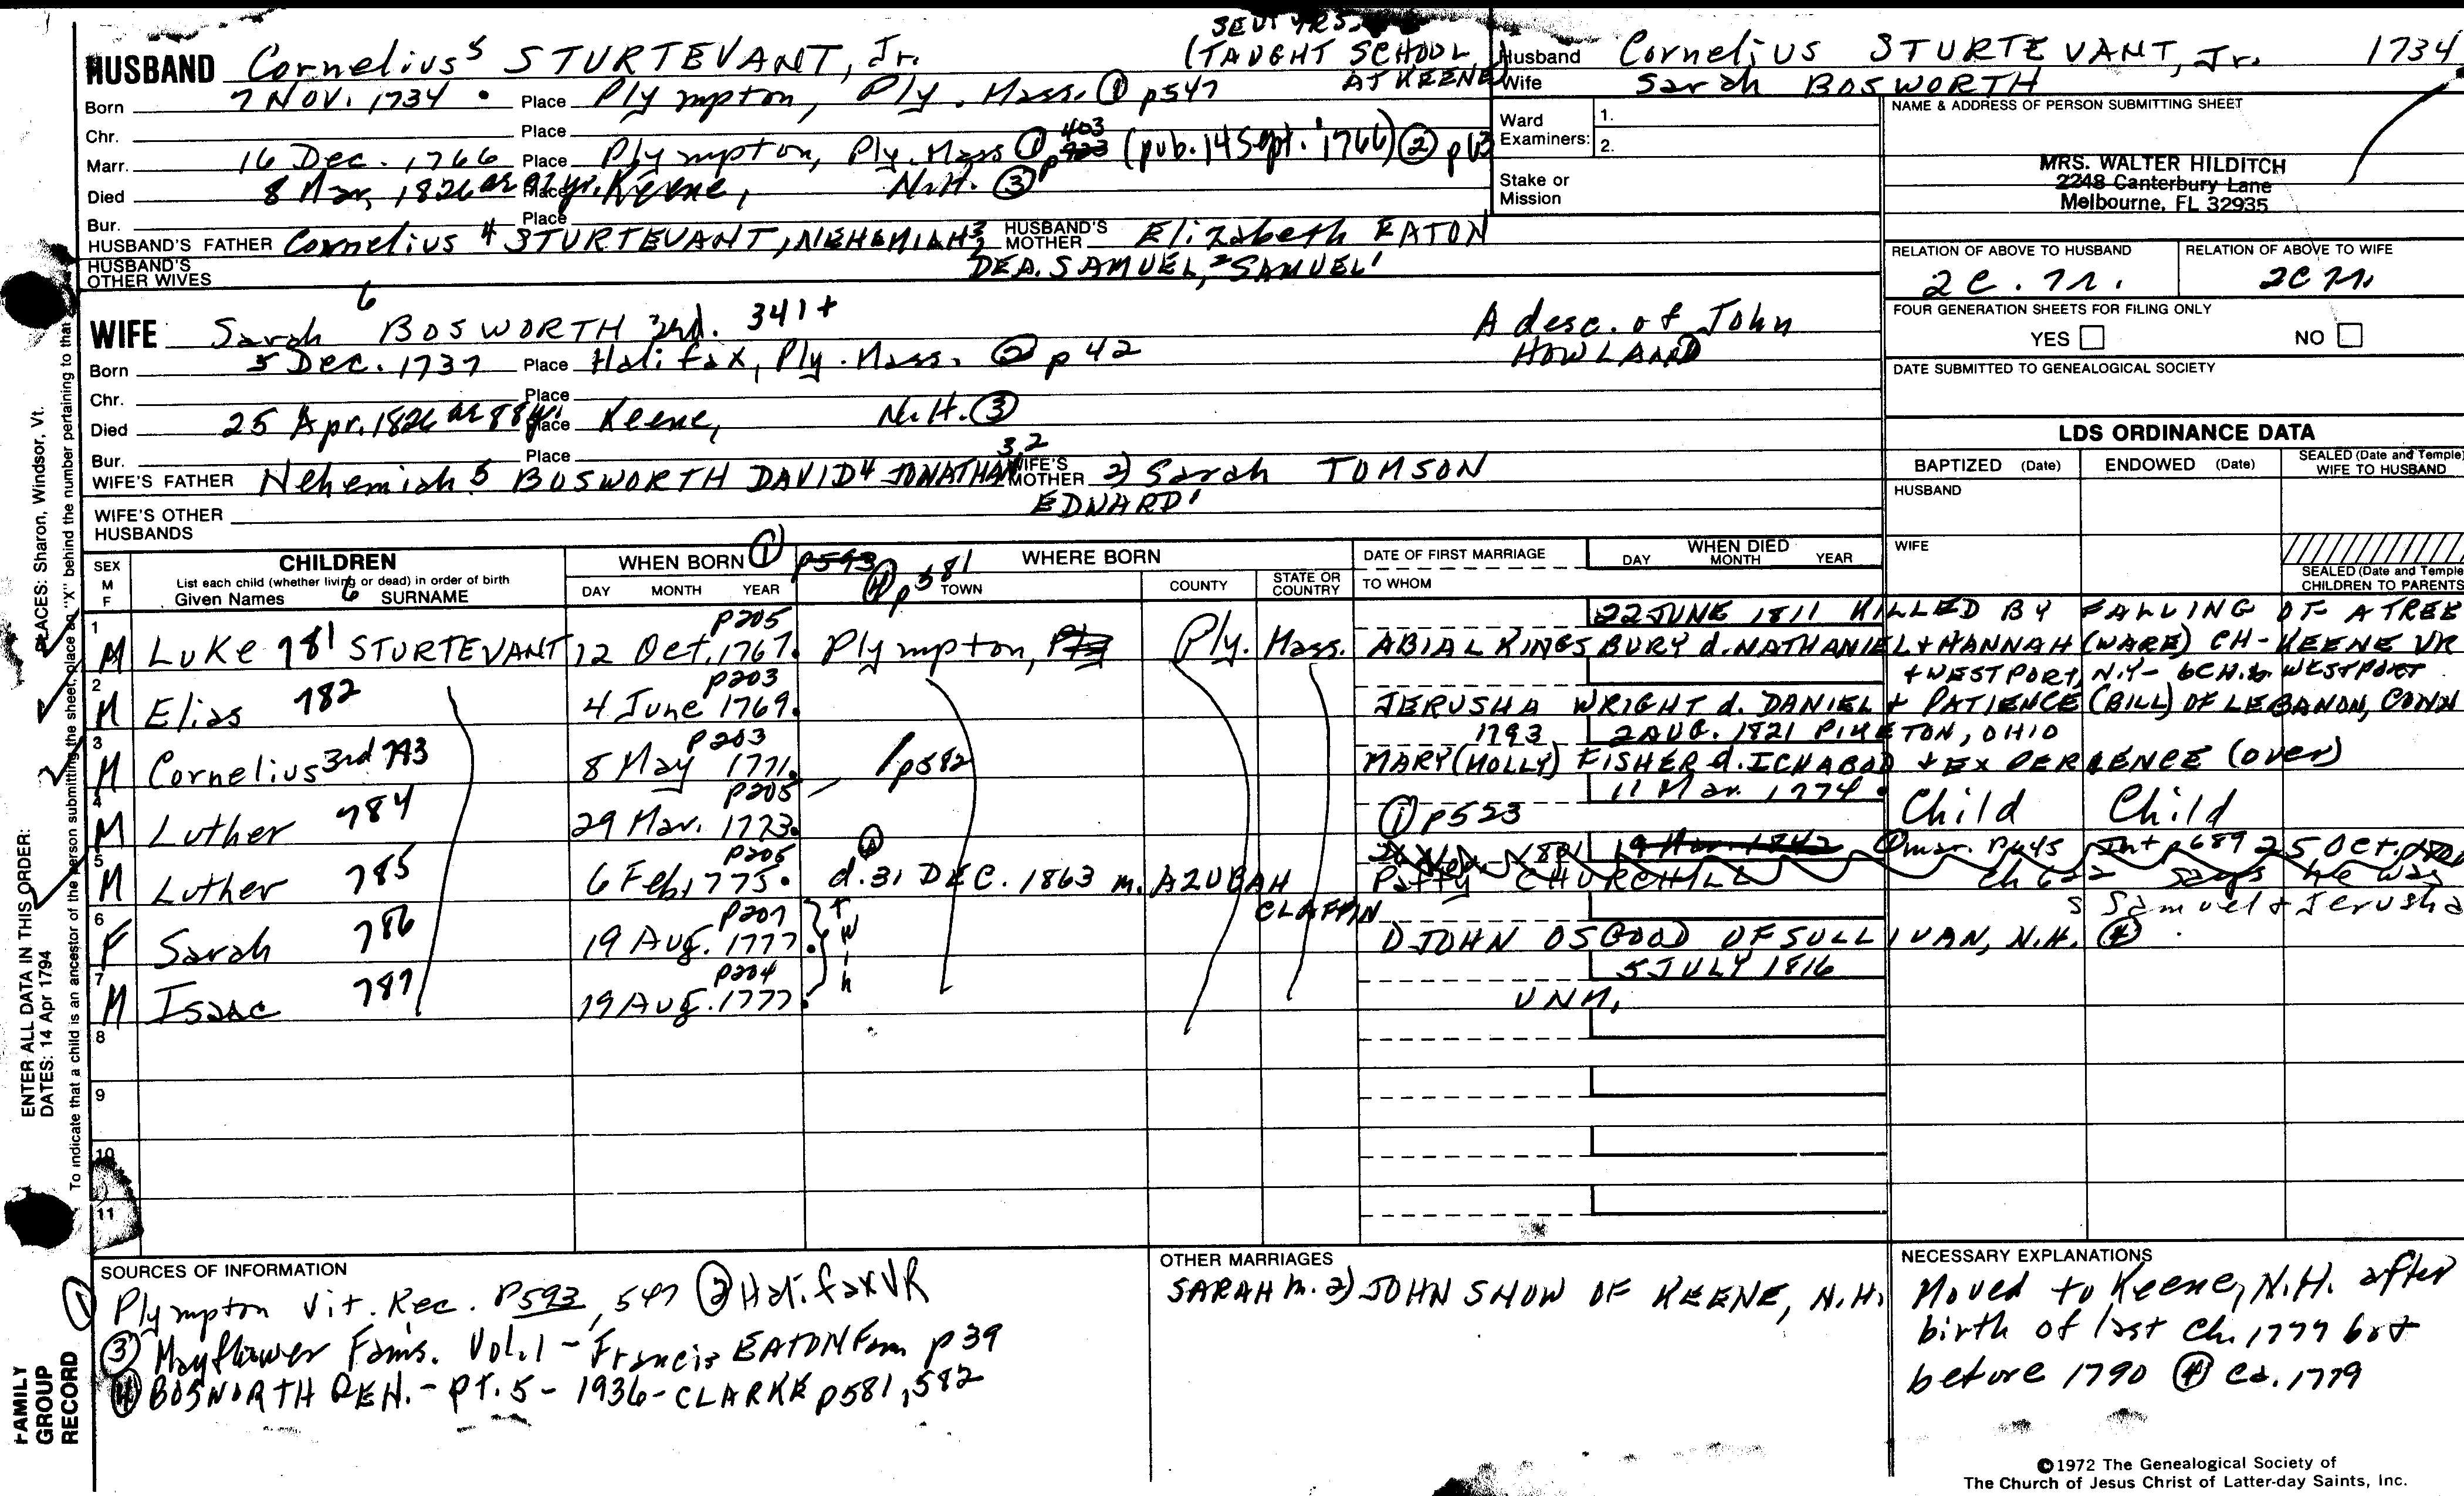 SEV'L YRS.
HUSBAND Cornelius 5 STURTEVANT, Jr. (TAUGHT SCHOOL AT KEENE)
Born 7 Nov. 1734 Place Plympton, Ply. Mass. ① p547
Chr. Place
Marr. 16 Dec. 1766 Place Plympton, Ply. Mass ① p 403 (pub. 14 Sept. 1766) ② p63
Died 8 Mar. 1826 ae 91 yr. Place Keene, N.H. ③
Bur. Place
HUSBAND'S FATHER Cornelius 4 STURTEVANT, NEHEMIAH 3, HUSBAND'S MOTHER Elizabeth EATON
DEA. SAMUEL, 2 SAMUEL 1
HUSBAND'S OTHER WIVES
WIFE Sarah 6 BOSWORTH 3rd. 341+ A desc. of John HOWLAND
Born 5 Dec. 1737 Place Halifax, Ply. Mass. ② p 42
Chr. Place
Died 25 Apr. 1826 ae 88 yr. Place Keene, N.H. ③
Bur. Place
WIFE'S FATHER Nehemiah 5 BOSWORTH DAVID 4 JONATHAN 3,2 WIFE'S MOTHER 2) Sarah TOMSON
EDWARD 1
WIFE'S OTHER HUSBANDS
Husband Cornelius STURTEVANT, Jr. 1734
Wife Sarah BOSWORTH
Ward Examiners: 1.
2.
Stake or Mission
NAME & ADDRESS OF PERSON SUBMITTING SHEET
MRS. WALTER HILDITCH
2248 Canterbury Lane
Melbourne, FL 32935
RELATION OF ABOVE TO HUSBAND RELATION OF ABOVE TO WIFE
2C. 7r. 2C 7r.
FOUR GENERATION SHEETS FOR FILING ONLY
YES NO
DATE SUBMITTED TO GENEALOGICAL SOCIETY
LDS ORDINANCE DATA
BAPTIZED (Date) ENDOWED (Date) SEALED (Date and Temple) WIFE TO HUSBAND
HUSBAND
WIFE
SEALED (Date and Temple) CHILDREN TO PARENTS
SEX M F CHILDREN WHEN BORN ① p593 WHERE BORN DATE OF FIRST MARRIAGE WHEN DIED
List each child (whether living or dead) in order of birth
Given Names 6 SURNAME DAY MONTH YEAR ④ p581 TOWN COUNTY STATE OR COUNTRY TO WHOM DAY MONTH YEAR
1 p205 22 JUNE 1811 KILLED BY FALLING OF A TREE
M Luke 781 STURTEVANT 12 Oct. 1767. Plympton, Ply. Mass. ABIAL KINGSBURY d. NATHANIEL + HANNAH (WARE) CH - KEENE VR
2 p203 + WESTPORT, N.Y - 6CH. to WESTPORT
M Elias 782 4 June 1769. JERUSHA WRIGHT d. DANIEL + PATIENCE (BILL) OF LEBANON, CONN
3 p203 1793 2 AUG. 1821 PIKETON, OHIO
M Cornelius 3rd 783 8 May 1771. p582 MARY (MOLLY) FISHER d. ICHABOD + EXPERIENCE (over)
4 p205 11 Mar. 1774. Child Child
M Luther 784 29 Mar. 1773. ① p523
5 p205 19 Mar. 1842 ① mar. p445 Int p689 25 Oct.
M Luther 785 6 Feb. 1775. ④ d. 31 DEC. 1863 m. AZUBAH CLAFFIN Patty CHURCHILL Ch 622 says he was
s Samuel + Jerusha
6 p207
F Sarah 786 19 Aug. 1777. twin 1) JOHN OSGOOD OF SULLIVAN, N.H. ④
7 p204 5 JULY 1816
M Isaac 787 19 Aug. 1777. UNM.
8
9
10
11
SOURCES OF INFORMATION
① Plympton Vit. Rec. p593, 547 ② Halifax VR
③ Mayflower Fams. Vol. 1 - Francis EATON Fam p 39
④ BOSWORTH GEN. - PT. 5 - 1936 - CLARKE p581, 582
OTHER MARRIAGES
SARAH m. 2) JOHN SNOW OF KEENE, N.H.
NECESSARY EXPLANATIONS
Moved to Keene, N.H. after
birth of last Ch. 1777 but
before 1790 ④ ca. 1779
©1972 The Genealogical Society of
The Church of Jesus Christ of Latter-day Saints, Inc.
ENTER ALL DATA IN THIS ORDER:
DATES: 14 Apr 1794
PLACES: Sharon, Windsor, Vt.
To indicate that a child is an ancestor of the person submitting the sheet, place an "X" behind the number pertaining to that
FAMILY
GROUP
RECORD